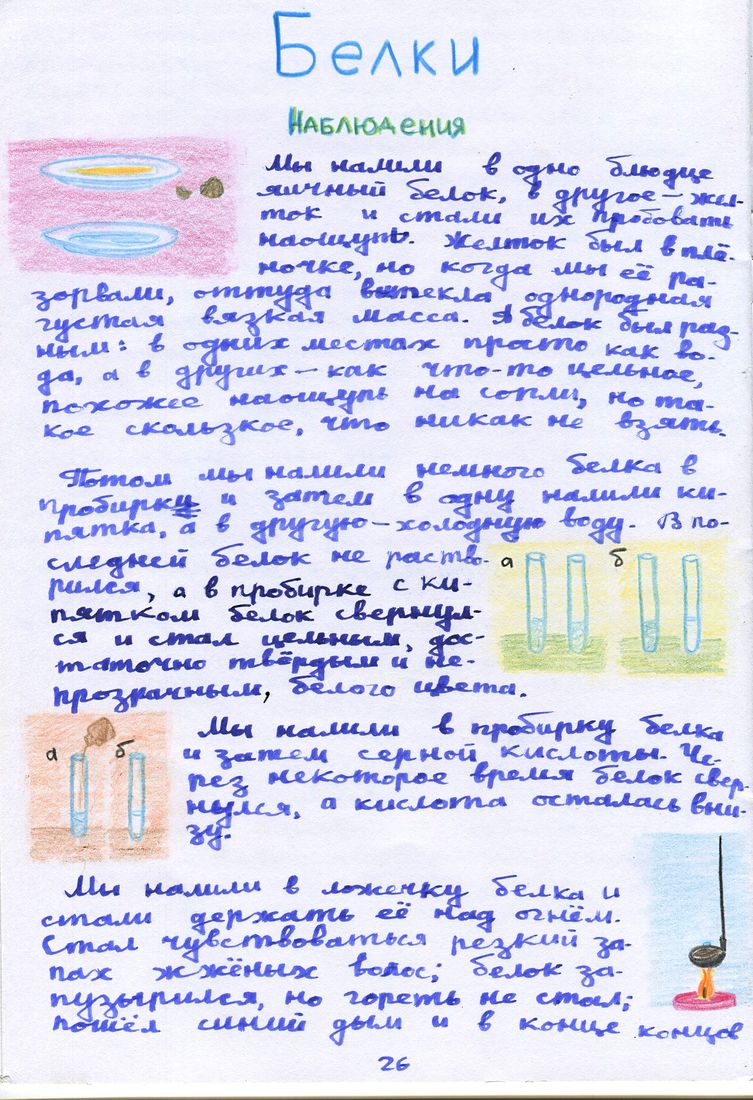 Белки
Наблюдения
Мы налили в одно блюдце
яичный белок, в другое — жел-
ток и стали их пробовать
наощупь. Желток был в плё-
ночке, но когда мы её ра-
зорвали, оттуда вытекла однородная
густая вязкая масса. А белок был раз-
ным: в одних местах просто как во-
да, а в других — как что-то цельное,
похожее наощупь на сопли, но та-
кое скользкое, что никак не взять.
Потом мы налили немного белка в
пробирки и затем в одну налили ки-
пятка, а в другую — холодную воду. В по-
следней белок не раство-
рился, а в пробирке с ки-
пятком белок свернул-
ся и стал цельным, дос-
таточно твёрдым и не-
прозрачным, белого цвета.
а
б
Мы налили в пробирку белка
и затем серной кислоты. Че-
рез некоторое время белок свер-
нулся, а кислота осталась вни-
зу.
а
б
Мы налили в ложечку белка и
стали держать её над огнём.
Стал чувствоваться резкий за-
пах жжёных волос; белок за-
пузырился, но гореть не стал;
пошёл синий дым и в конце концов
26